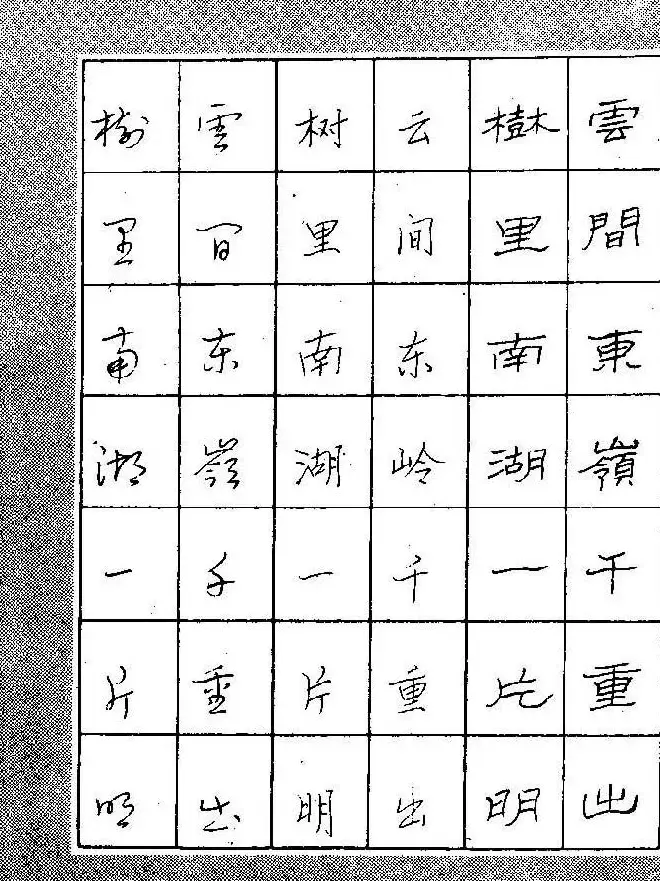 雲間東嶺千重出
樹里南湖一片明
云间东岭千重出
树里南湖一片明
雲间东嶺千重出
树里南湖一片明